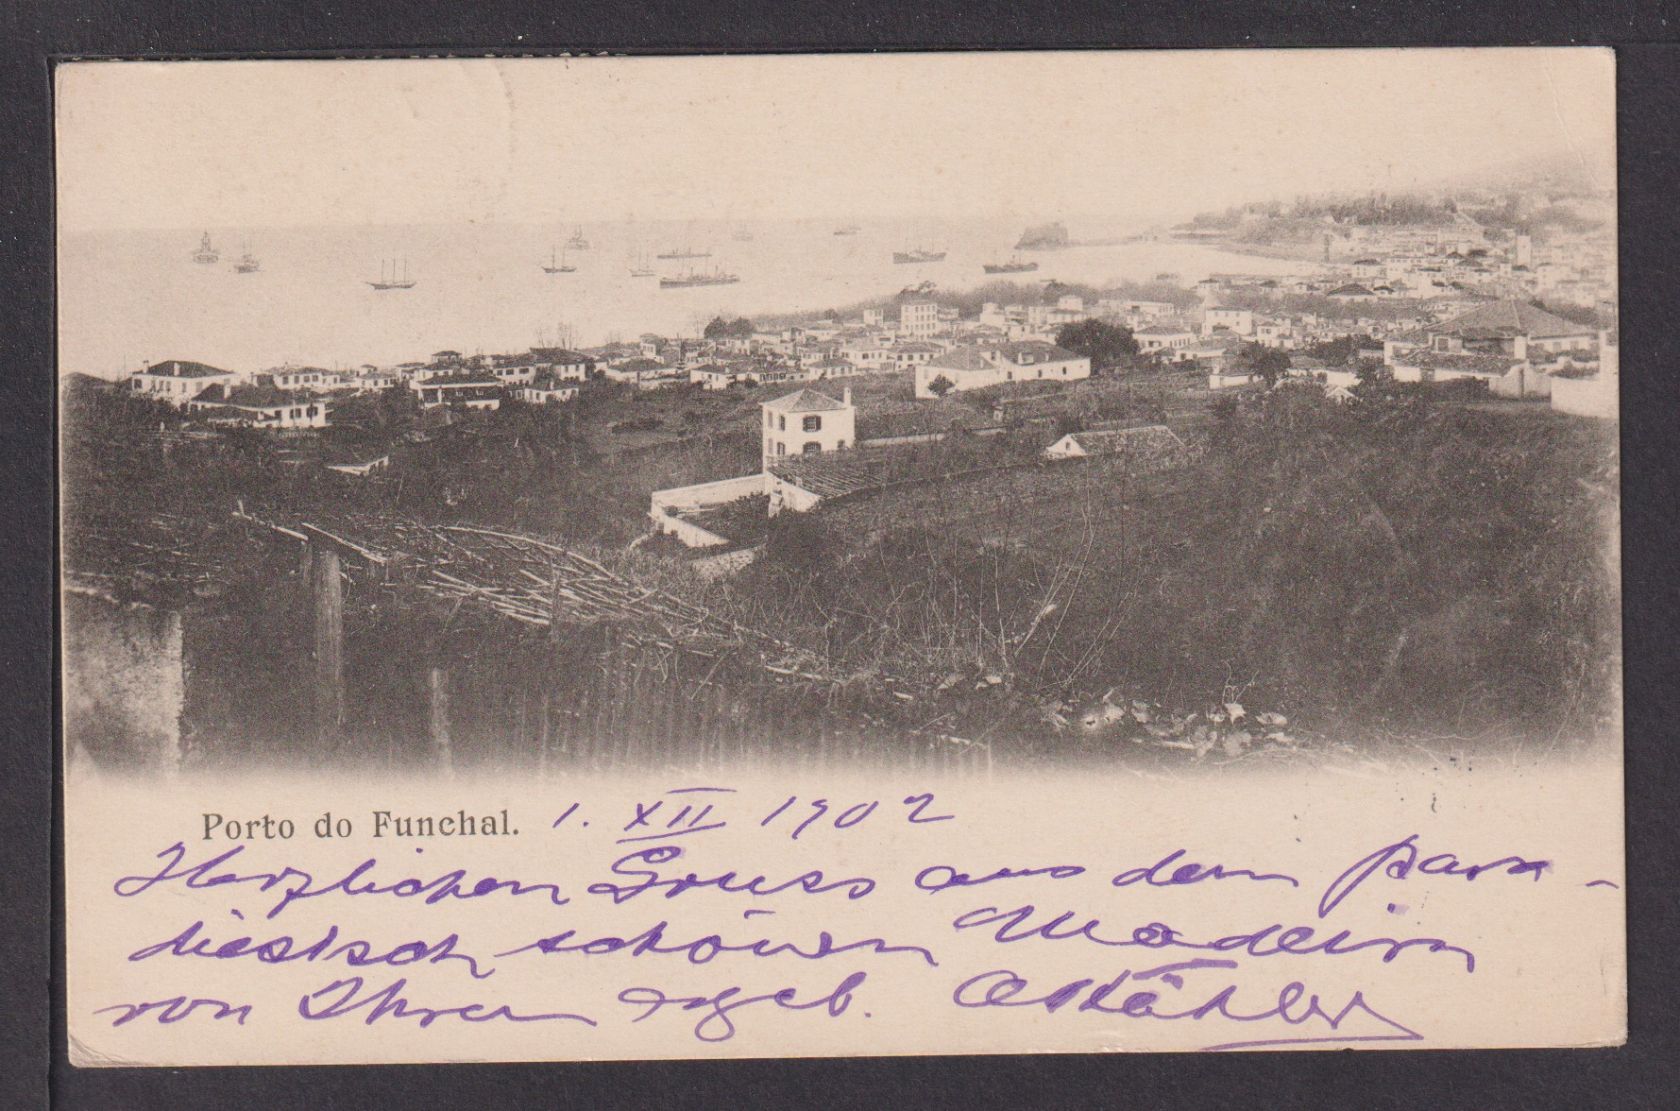 Porto do Funchal. 1. XII 1902
Herzlichen Gruss aus dem para-
diesisch schönen Madeira
von Ihrem ergeb. Köhler